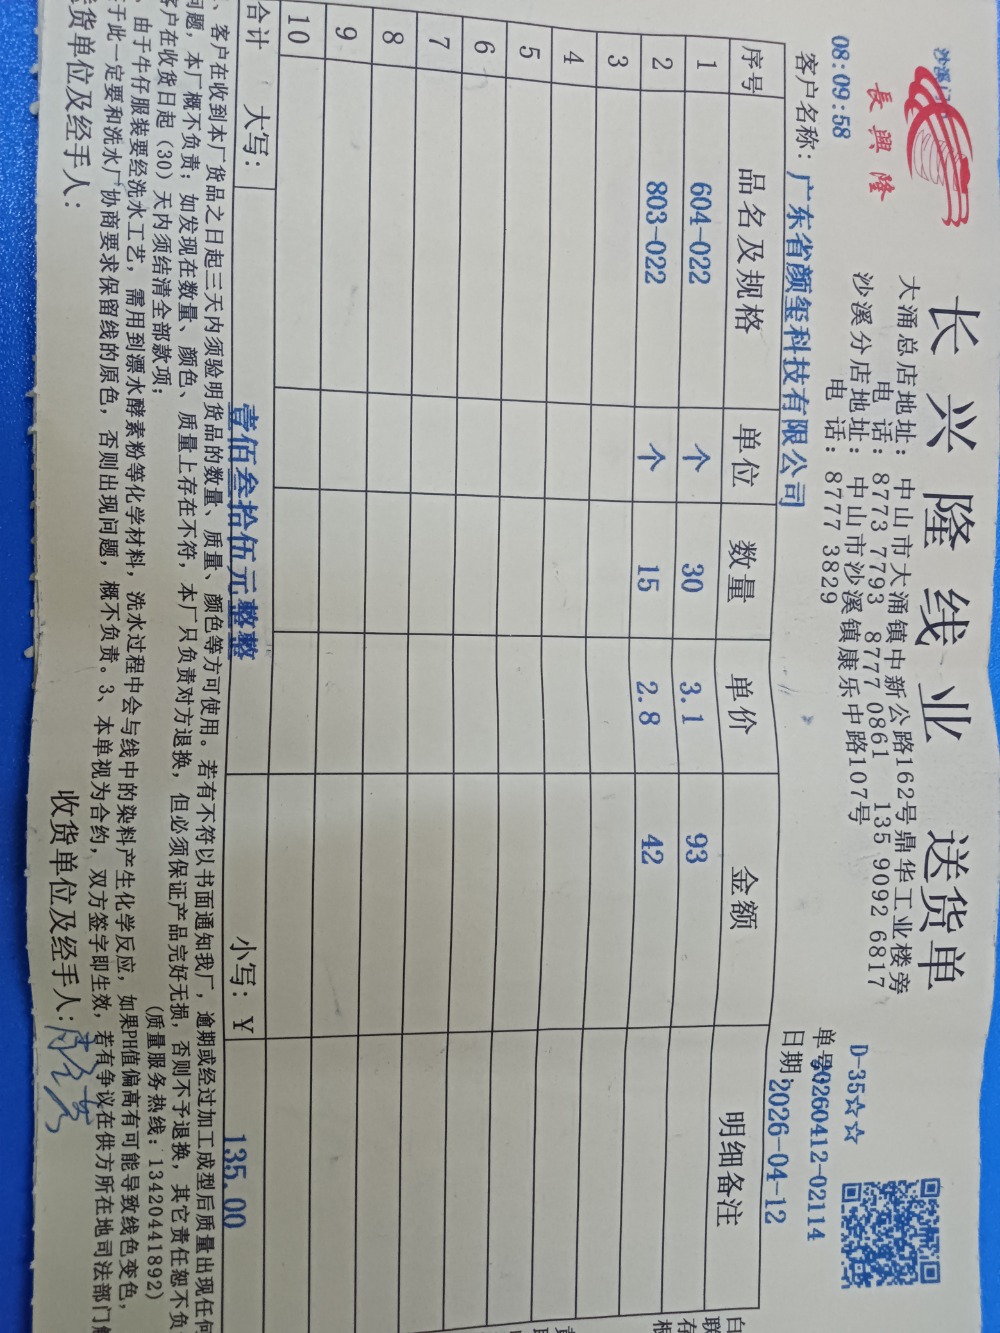 沙溪门
長興隆
08:09:58
长兴隆线业 送货单
大涌总店地址：中山市大涌镇中新公路162号鼎华工业楼旁
电 话：8773 7793 8777 0861 135 9092 6817
沙溪分店地址：中山市沙溪镇康乐中路107号
电 话：8777 3829
D-35☆☆
单号20260412-02114
日期：2026-04-12
客户名称：广东省颜玺科技有限公司
序号 品名及规格 单位 数量 单价 金额 明细备注
1 604-022 个 30 3.1 93
2 803-022 个 15 2.8 42
3
4
5
6
7
8
9
10
合计 大写： 壹佰叁拾伍元整整 小写：￥ 135.00
、客户在收到本厂货品之日起三天内须验明货品的数量、质量、颜色等方可使用。若有不符以书面通知我厂，逾期或经过加工成型后质量出现任何
问题，本厂概不负责；如发现在数量、颜色、质量上存在不符，本厂只负责对方退换，但必须保证产品完好无损，否则不予退换，其它责任恕不负
客户在收货日起（30）天内须结清全部款项； （质量服务热线：13420441892）
、由于牛仔服装要经洗水工艺，需用到漂水酵素粉等化学材料，洗水过程中会与线中的染料产生化学反应，如果PH值偏高有可能导致线色变色，
于此一定要和洗水厂协商要求保留线的原色，否则出现问题，概不负责。3、本单视为合约，双方签字即生效，若有争议在供方所在地司法部门
货单位及经手人： 收货单位及经手人：